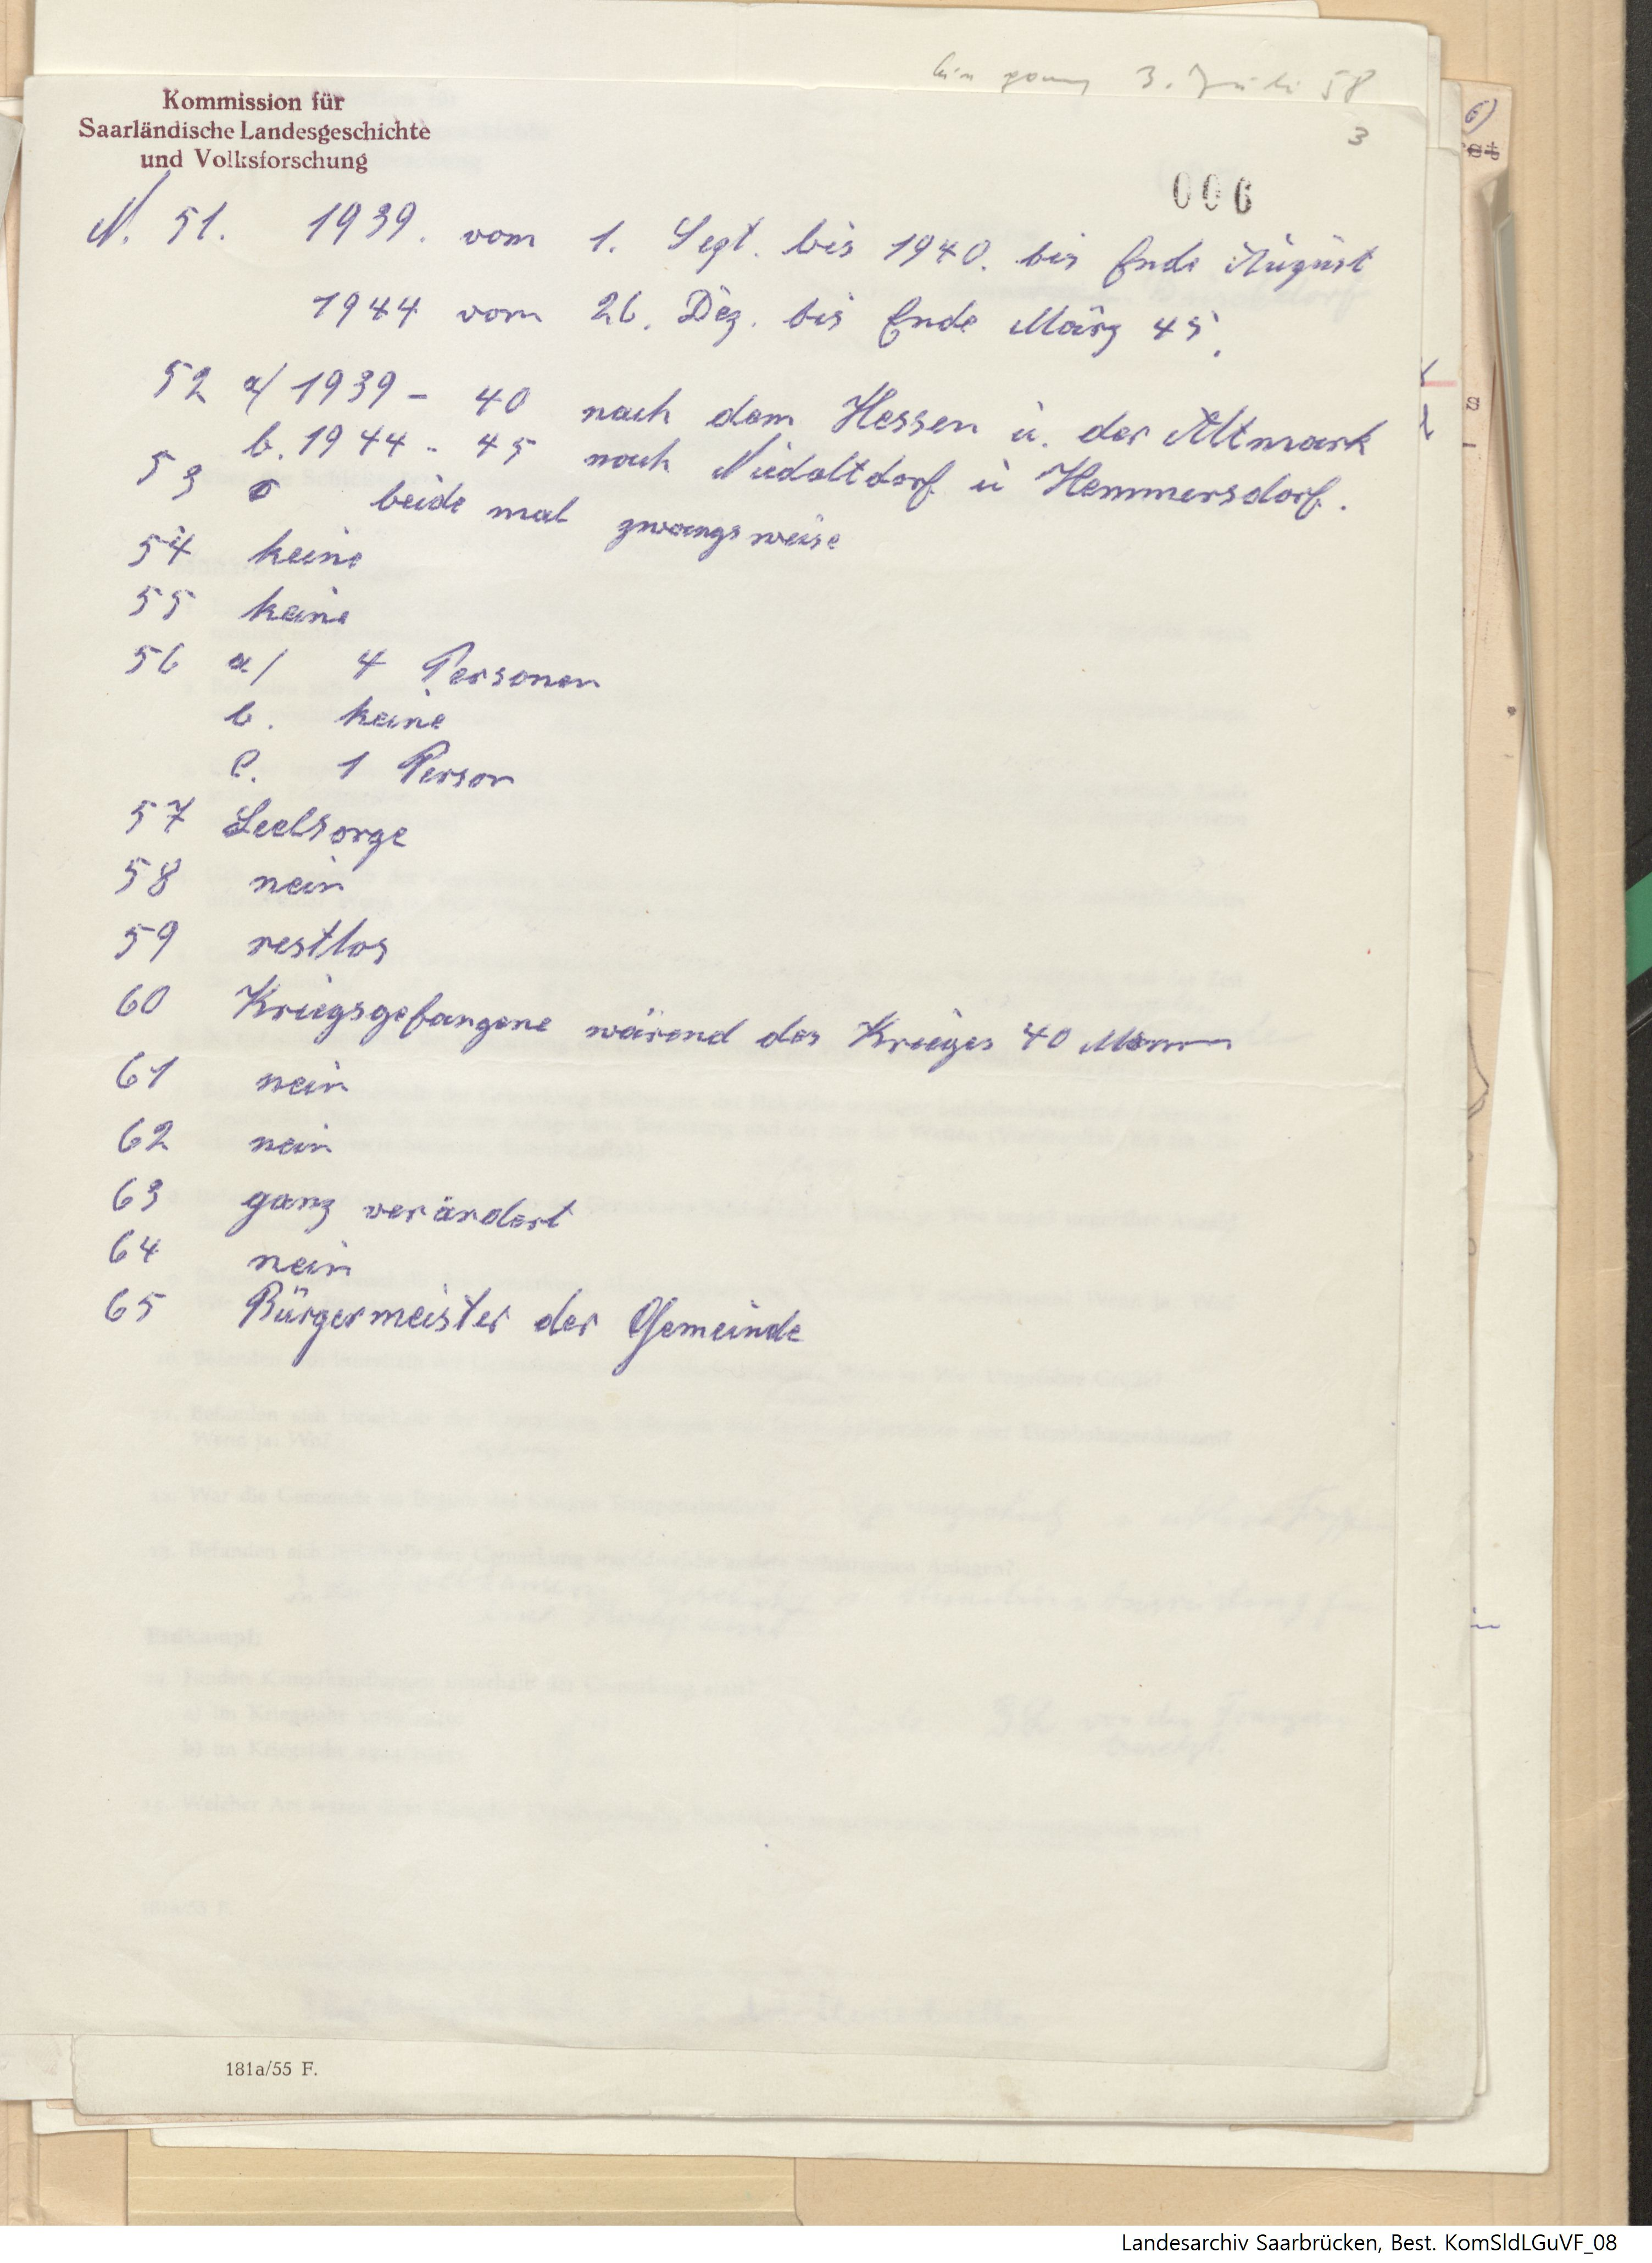 3. Juli 58
Kommission für
Saarländische Landesgeschichte
und Volksforschung
3
006
N. 51. 1939. vom 1. Sept. bis 1940. bis Ende August
1944 vom 26. Dez. bis Ende März 45.
52 a/ 1939 - 40 nach dem Hessen u. der Altmark
b. 1944 - 45 nach Niedaltdorf u Hemmersdorf.
53 beide mal zwangsweise
54 keine
55 keine
56 a/ 4 Personen
b. keine
c. 1 Person
57 Seelsorge
58 nein
59 restlos
60 Kriegsgefangene wärend des Krieges 40 Mann
61 nein
62 nein
63 ganz verändert
64 nein
65 Bürgermeister der Gemeinde
181a/55 F.
Landesarchiv Saarbrücken, Best. KomSldLGuVF_08